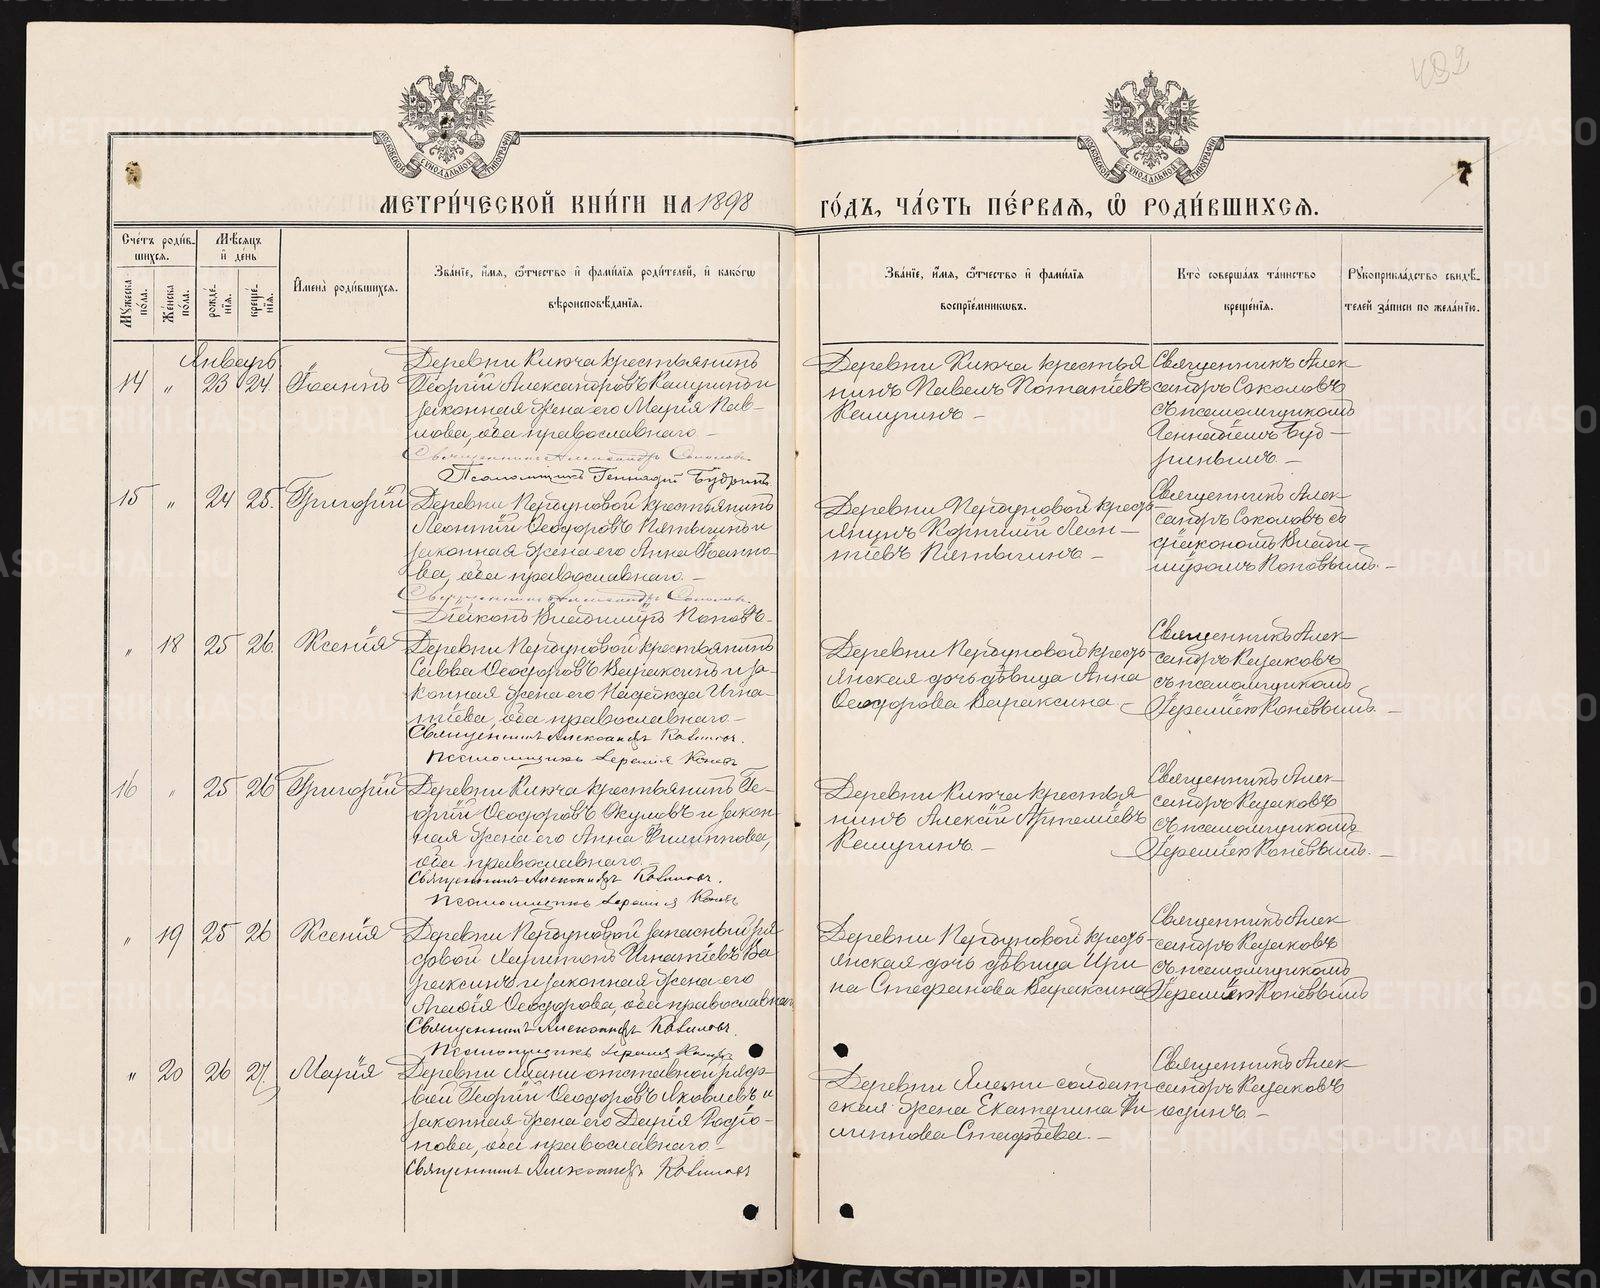 482
7
МОСКОВСКОЙ СѴНОДАЛЬНОЙ ТИПОГРАФІИ
МОСКОВСКОЙ СѴНОДАЛЬНОЙ ТИПОГРАФІИ
МЕТРИ́ЧЕСКОЙ КНИ́ГИ НА 1898 ГО́ДЪ, ЧА́СТЬ ПЕ́РВАѦ, Ѡ҆ РОДИ́ВШИХСѦ.
Сче́тъ роди́в-
шихсѧ.
Мꙋжеска по́ла.
Же́нска по́ла.
Мѣ́сѧцъ и҆ де́нь
рожде́нїѧ.
креще́нїѧ.
И҆мена̀ роди́вшихсѧ.
Зва́нїе, и҆́мѧ, ѻ҆́тчество и҆ фами́лїѧ роди́телей, и҆ како́гѡ
вѣроисповѣ́данїѧ.
Зва́нїе, и҆́мѧ, ѻ҆́тчество и҆ фами́лїѧ
воспрїе́мникѡвъ.
Кто̀ соверша́лъ та́инство
креще́нїѧ.
Рꙋкоприкла́дство свидѣ́-
телей за́писи по жела́нїю.
Январь.
14 " 23 24. Іоаннъ
Деревни Ключа крестьянинъ
Георгій Александровъ Кашугинъ и
законная жена его Марія Пав-
лова, оба православнаго –
Священникъ Александръ Соколовъ.
Псаломщикъ Геннадій Будринъ.
Деревни Ключа крестья
нинъ Павелъ Потапіевъ
Кашугинъ –
Священникъ Алек
сандръ Соколовъ
съ псаломщикомъ
Геннадіемъ Буд –
ринымъ –
15 " 24 25. Григорій
Деревни Пербуновой крестьянинъ
Леонтій Ѳеодоровъ Пятыгинъ и
законная жена его Анна Іоанно-
ва, оба православнаго. –
Священникъ Александръ Соколовъ.
Діаконъ Владиміръ Поповъ.
Деревни Пербуновой кресть
янинъ Корнилій Леон –
тіевъ Пятыгинъ –
Священникъ Алек
сандръ Соколовъ съ
діакономъ Влади –
міромъ Поповымъ. –
" 18 25 26. Ксенія
Деревни Пербуновой крестьянинъ
Савва Ѳеодоровъ Вараксинъ и за-
конная жена его Надежда Игна-
тіева, оба православнаго –
Священникъ Александръ
Псаломщикъ Іеремія Коневъ
Деревни Пербуновой кресть
янская дочь дѣвица Анна
Ѳеодорова Вараксина –
Священникъ Алек
сандръ
съ псаломщикомъ
Іереміею Коневымъ. –
16 " 25 26 Григорій
Деревни Ключа крестьянинъ Ге-
оргій Ѳеодоровъ Окуловъ и закон-
ная жена его Анна Филиппова,
оба православнаго. –
Священникъ Александръ
Псаломщикъ Іеремія Коневъ
Деревни Ключа крестья
нинъ Алексій Артеміевъ
Кашугинъ –
Священникъ Алек
сандръ
съ псаломщикомъ
Іереміею Коневымъ. –
" 19 25 26 Ксенія
Деревни Пербуновой запасный ря
довой Харитонъ Игнатіевъ Ва
раксинъ и законная жена его
Агафія Ѳеодорова, оба православнаго
Священникъ Александръ
Псаломщикъ Іеремія Коневъ
Деревни Пербуновой кресть
янская дочь дѣвица Ири
на Стефанова Вараксина
Священникъ Алек
сандръ
съ псаломщикомъ
Іереміею Коневымъ
" 20 26 27. Марія
Деревни отставной рядо-
вой Георгій Ѳеодоровъ Яковлевъ и
законная жена его Дарія Родіо-
нова, оба православнаго –
Священникъ Александръ
Деревни солдат
ская жена Екатерина Фи
липпова Стафѣева. –
Священникъ Алек
сандръ
одинъ –